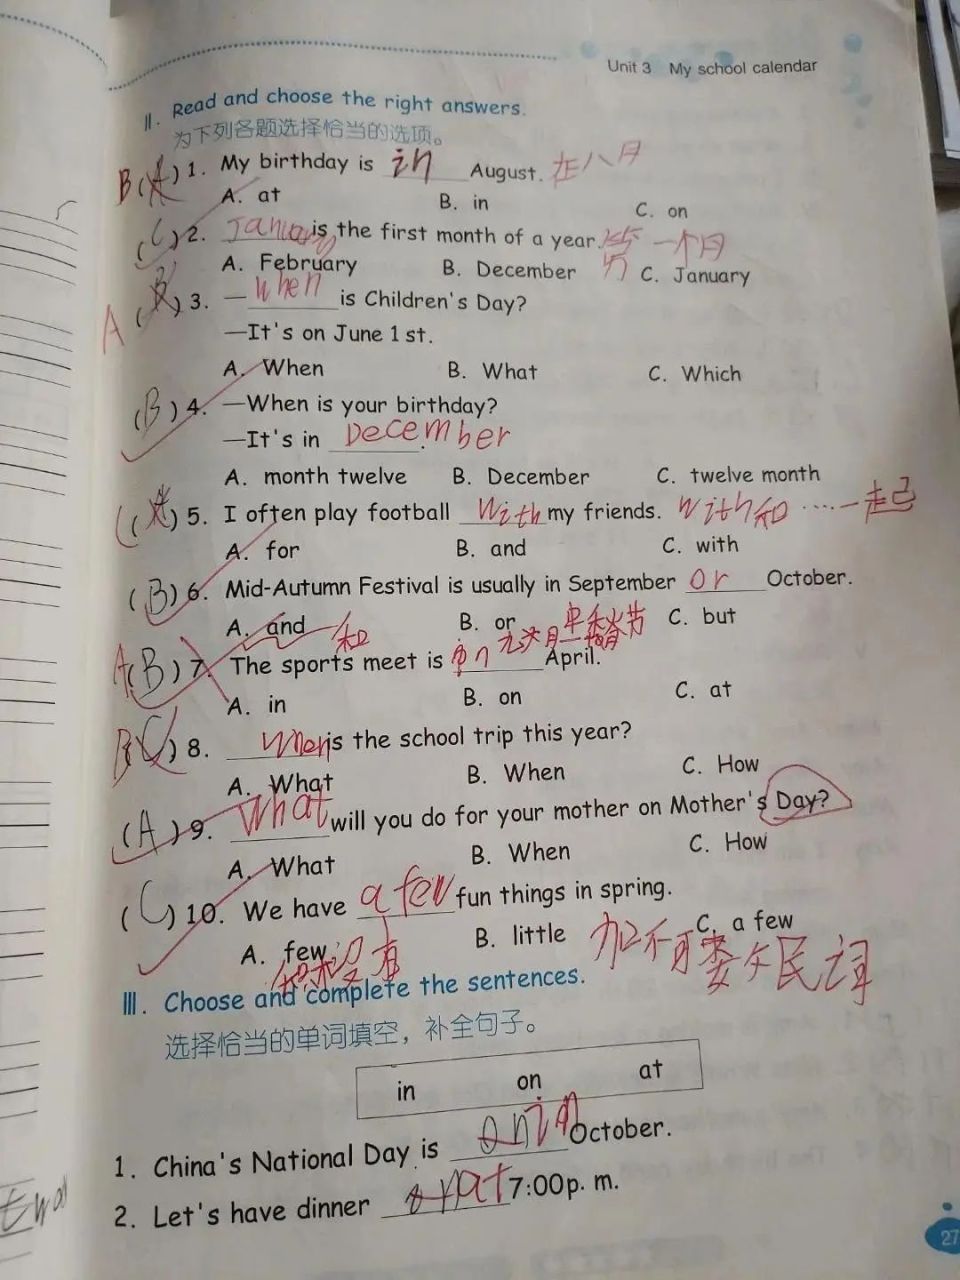 Unit 3 My school calendar
II. Read and choose the right answers.
为下列各题选择恰当的选项。
B(A) 1. My birthday is in August. 在八月
A. at B. in C. on
(C) 2. January is the first month of a year. 一个月
A. February B. December C. January
A (B) 3. — When is Children's Day?
—It's on June 1 st.
A. When B. What C. Which
(B) 4. —When is your birthday?
—It's in December.
A. month twelve B. December C. twelve month
C(A) 5. I often play football with my friends. with和……一起
A. for B. and C. with
(B) 6. Mid-Autumn Festival is usually in September or October.
A. and 和 B. or 中秋节 C. but
A(B) 7. The sports meet is in April.
A. in B. on C. at
B(C) 8. When is the school trip this year?
A. What B. When C. How
(A) 9. What will you do for your mother on Mother's Day?
A. What B. When C. How
(C) 10. We have a few fun things in spring.
A. few 没有 B. little C. a few
加不可数名词
III. Choose and complete the sentences.
选择恰当的单词填空，补全句子。
in on at
1. China's National Day is on in October.
2. Let's have dinner at 7:00p. m.
27